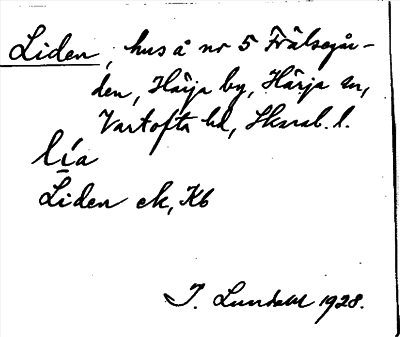 Liden, hus å nr 5 Frälsegår-
den, Härja by, Härja sn,
Vartofta hd, Skarab. l.
lia
Liden ek, Kb
I. Lundahl 1928.